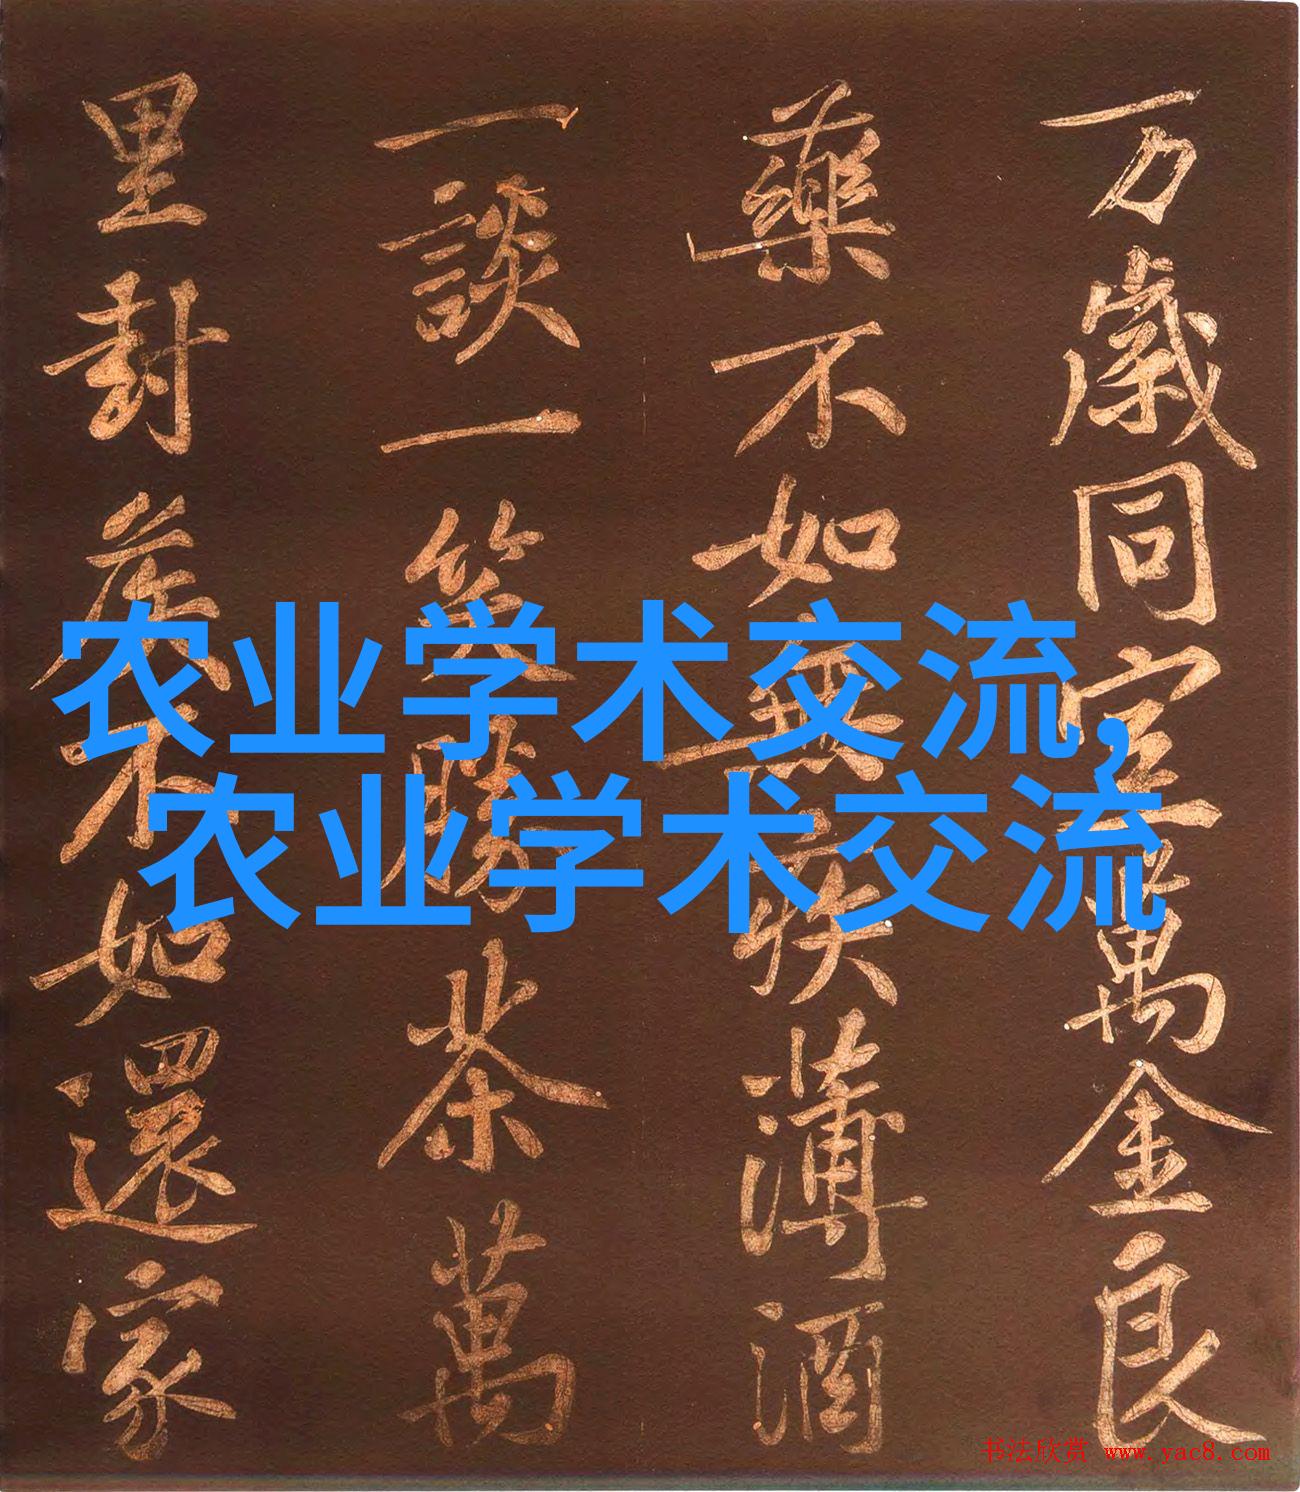 农业学术交流,
农业学术交流
万歲同室萬金良
藥不如無疾薄酒
一談一笑勝茶萬
里封矦不如還家
书法欣赏 www.yac8.com